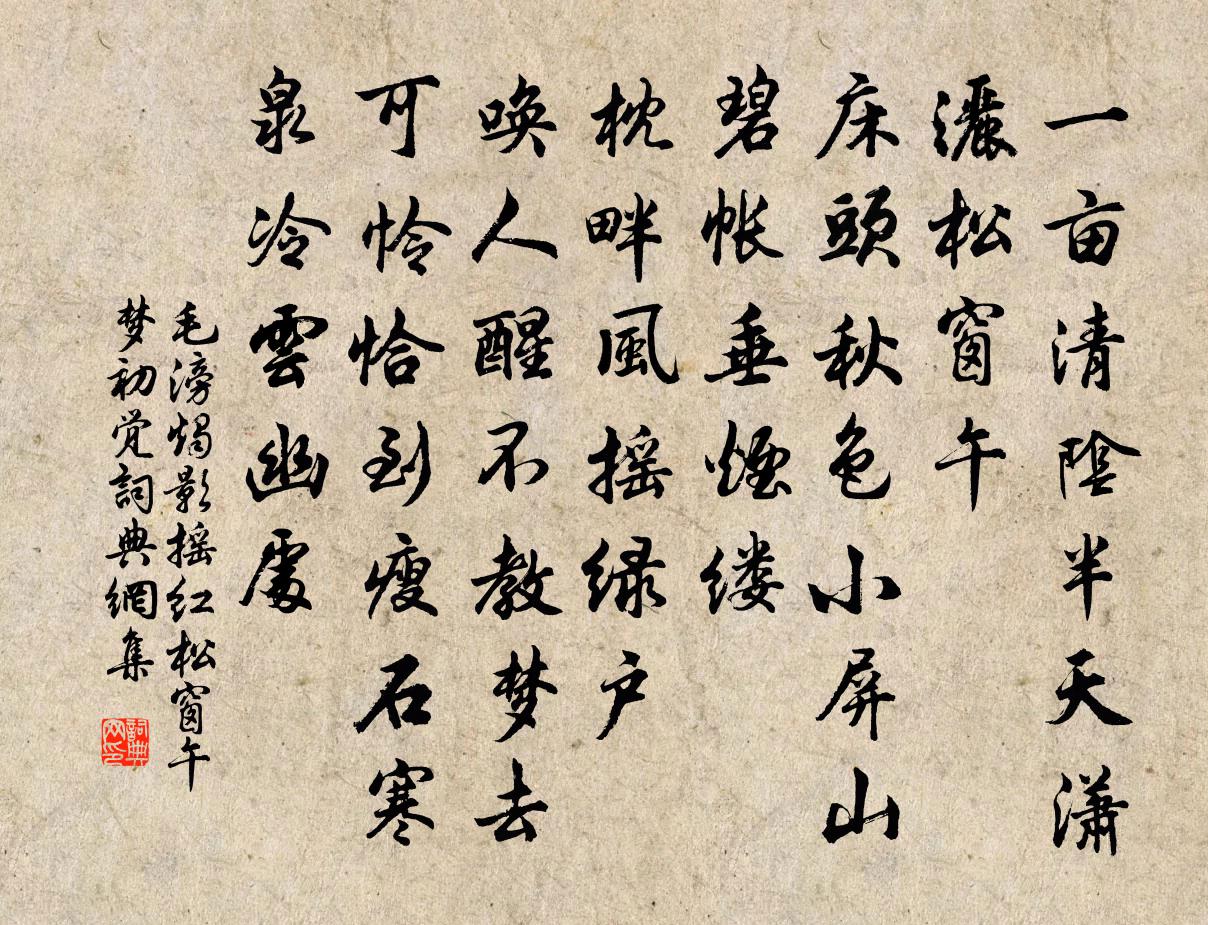 一亩清陰半天潇
灑松窗午
床頭秋色小屏山
碧帐垂煙缕
枕畔風摇绿户
唤人醒不教梦去
可怜恰到瘦石寒
泉冷雲幽處
毛滂燭影摇红松窗午
梦初觉詞典網集
詞典